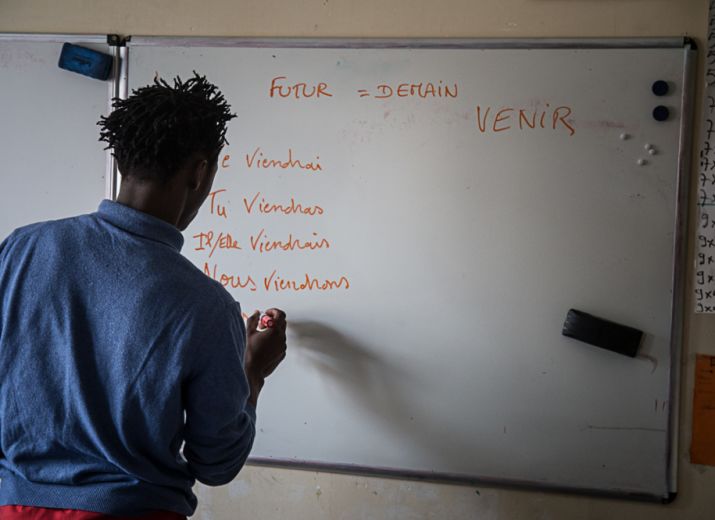 FUTUR = DEMAIN
VENIR
e viendrai
Tu viendras
Il/Elle viendrais
Nous viendrons